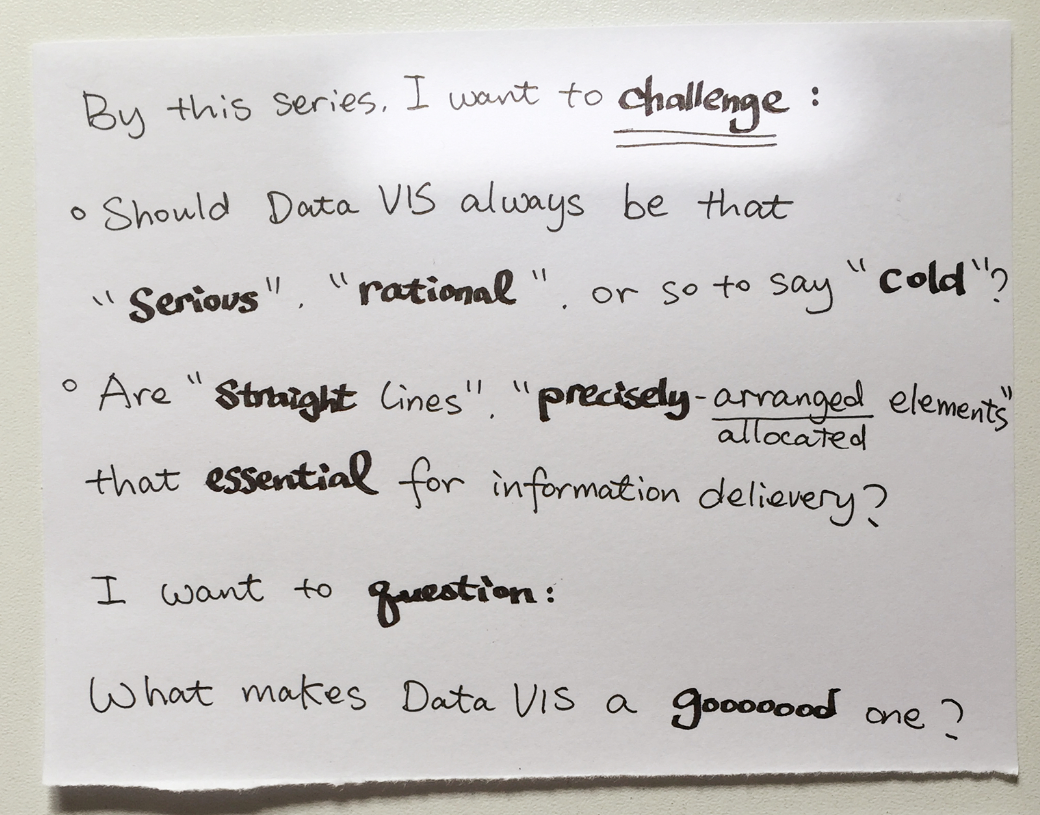 By this series, I want to challenge :
Should Data VIS always be that
"Serious", "rational", or so to say "cold"?
Are "Straight lines", "precisely-arranged elements"
allocated
that essential for information delievery?
I want to question:
What makes Data VIS a gooooood one?